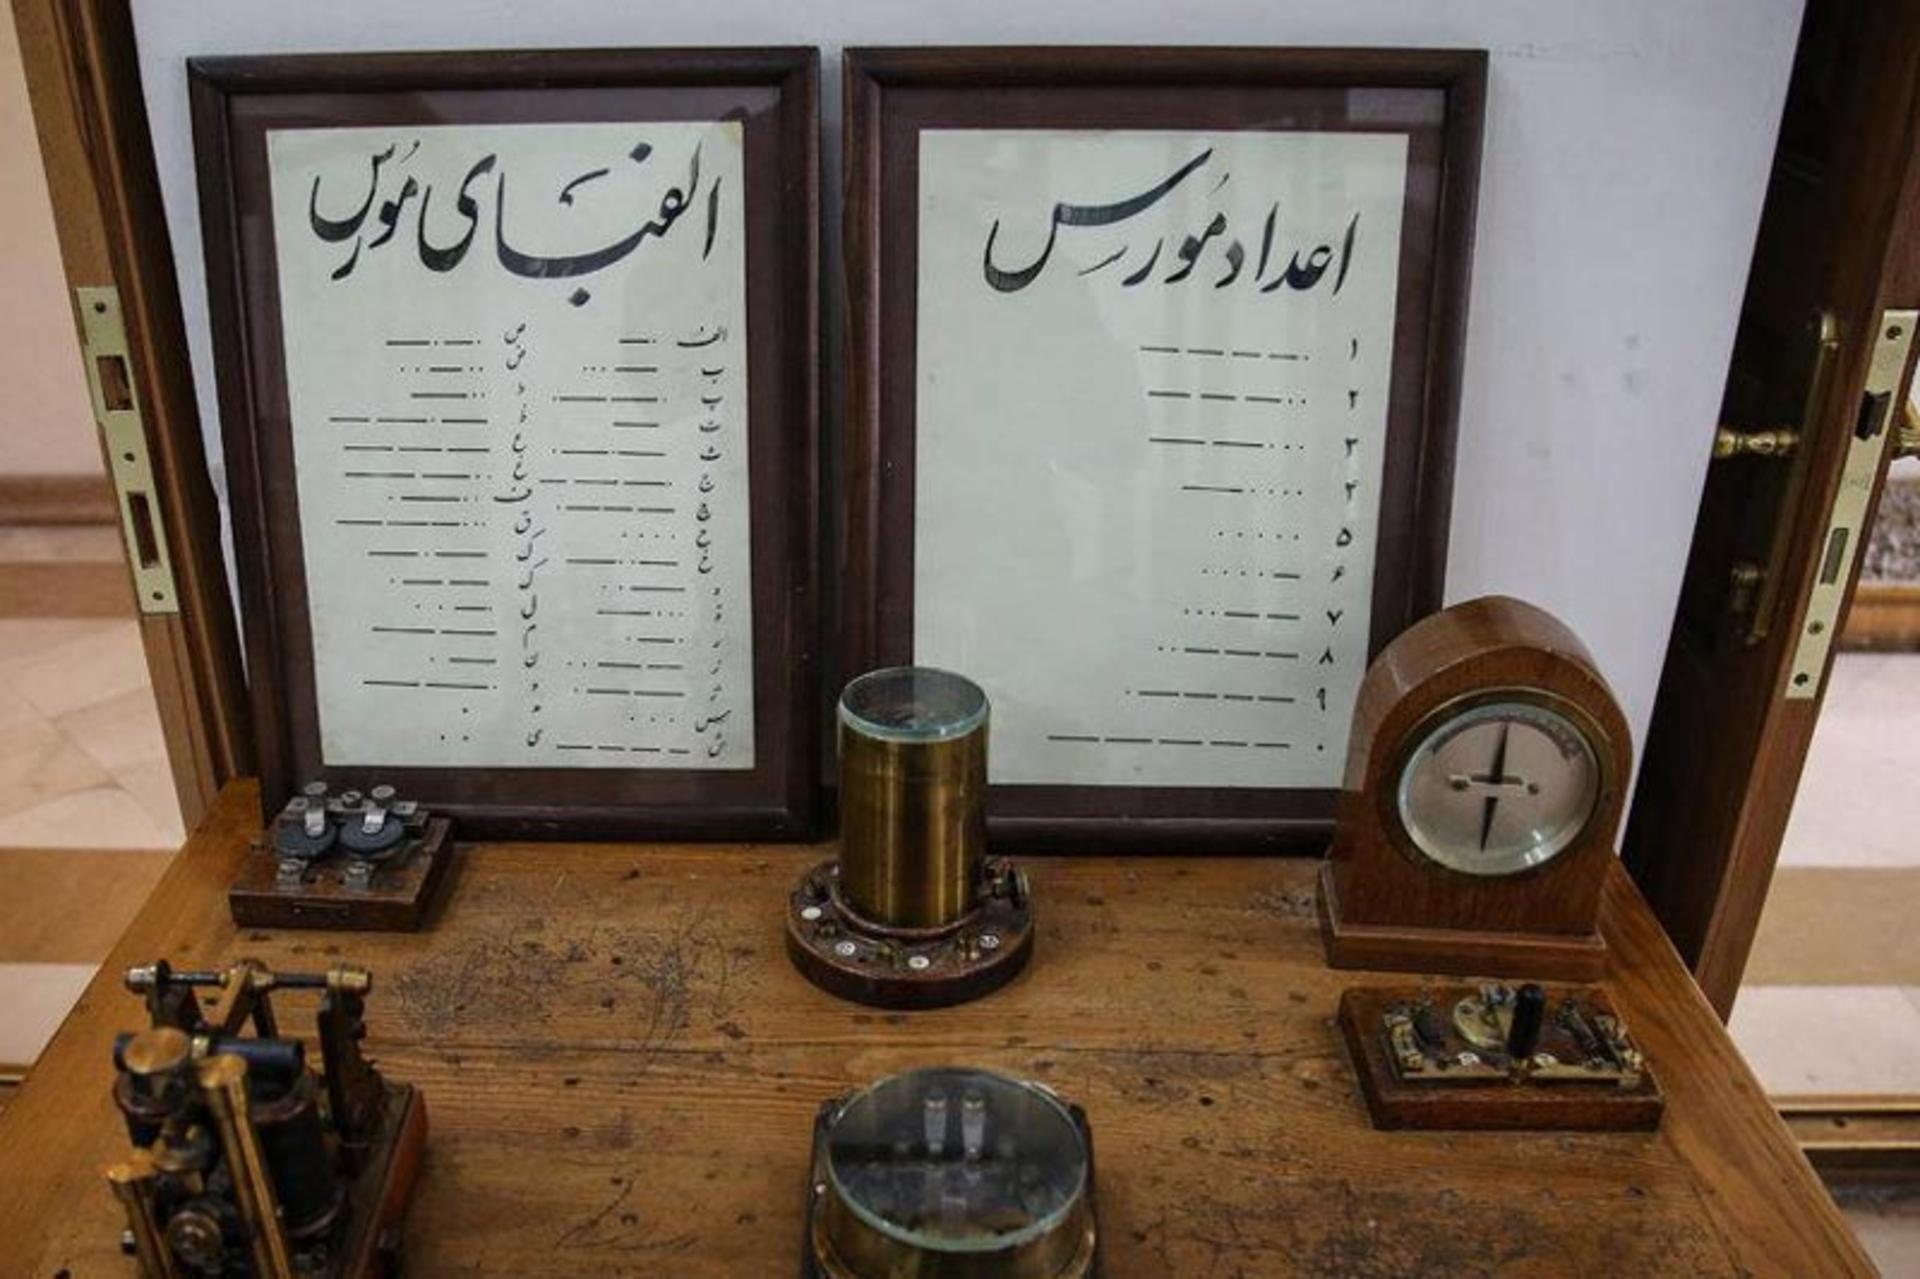 اعداد مورس
۱ .————
۲ ..———
۳ ...——
۴ ....—
۵ .....
۶ —....
۷ ——...
۸ ———..
۹ ————.
۰ —————
الفبای مُورس
الف .—
ب —...
پ .——.
ت —
ث —.—.
ج .———
چ ———.
ح ....
خ —..—
د —..
ذ ...—
ر .—.
ز ——..
ژ ——.
س ...
ش ————
ص
ض ..—..
ط ..—
ظ
ع ———
غ
ف ..—.
ق ...———
ک —.—
گ
ل
م ——
ن —.
و .——
ه .
ی ..